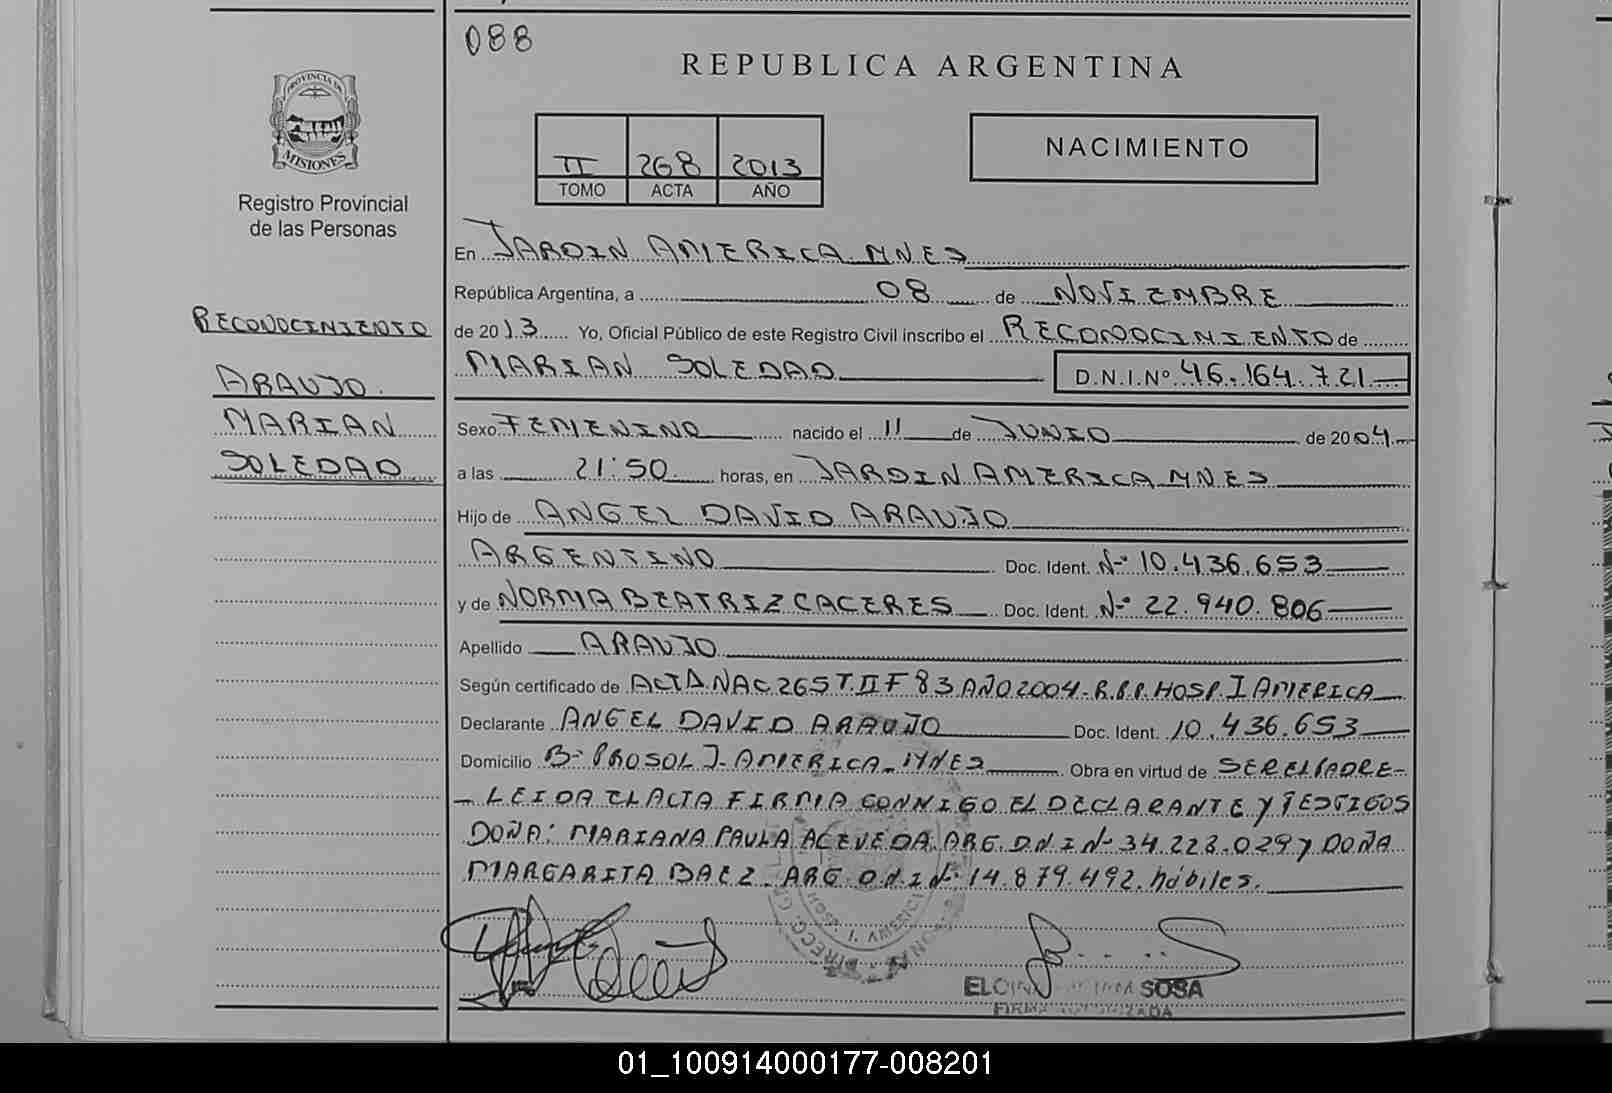 088
REPUBLICA ARGENTINA
PROVINCIA DE
MISIONES
Registro Provincial
de las Personas
II 268 2013
TOMO ACTA AÑO
NACIMIENTO
En JARDIN AMERICA MNES
República Argentina, a 08 de NOVIEMBRE
de 2013 Yo, Oficial Público de este Registro Civil inscribo el RECONOCIMIENTO de
MARIAN SOLEDAD D.N.I.Nº 46.164.721
RECONOCIMIENTO
ARAUJO
MARIAN
SOLEDAD
Sexo FEMENINO nacido el 11 de JUNIO de 2004
a las 21:50 horas, en JARDIN AMERICA MNES
Hijo de ANGEL DAVID ARAUJO
ARGENTINO Doc. Ident. Nº 10.436.653
y de NORMA BEATRIZ CACERES Doc. Ident. Nº 22.940.806
Apellido ARAUJO
Según certificado de ACTA NAC 265 T.II F 83 AÑO 2004-R.P.P. HOSP. J AMERICA
Declarante ANGEL DAVID ARAUJO Doc. Ident. 10.436.653
Domicilio Bº PROSOL J- AMERICA-MNES Obra en virtud de SER EL PADRE-
- LEIDA EL ACTA FIRMA CONMIGO EL DECLARANTE Y TESTIGOS
DOÑA: MARIANA PAULA ACEVEDA. ARG. D.N.I Nº 34.223.029 Y DOÑA
MARGARITA BAEZ. ARG. D.N.I Nº 14.879.492. hábiles.
SOSA
01_100914000177-008201